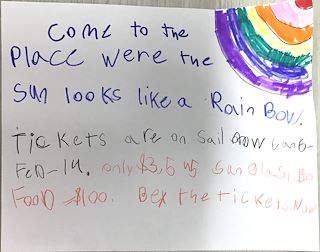 Come to the
Place were the
Sun looks like a Rain Bow.
Tickets are on Sail
Feb-14. only $3,5 Sun Glas,
Food $100. Bey the tickets Now